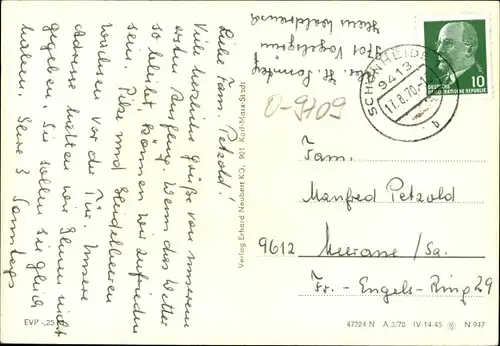 Liebe Fam. Petzold!
Viele herzliche Grüße von unserem
ersten Ausflug. Wenn das Wetter
so bleibt können wir zufrieden
sein. Pilze und Heidelbeeren
wachsen vor der Tür. Unsere
Adresse hatten wir Ihnen nicht
gegeben. Sie sollen sie gleich
haben. Ihre 3 Sonntags
Abs. H. Sonntag
9701 Vogelsgrün
Heim Waldfreund
Verlag Erhard Neubert KG, 901 Karl-Marx-Stadt
SCHÖNHEIDE
9413
17.8.70
b
DEUTSCHE
DEMOKRATISCHE REPUBLIK
10
O-9709
Fam.
Manfred Petzold
9612 Meerane/Sa.
Fr.-Engels-Ring 29
EVP -,25
47224 N A 3/70 IV-14-45 N 947